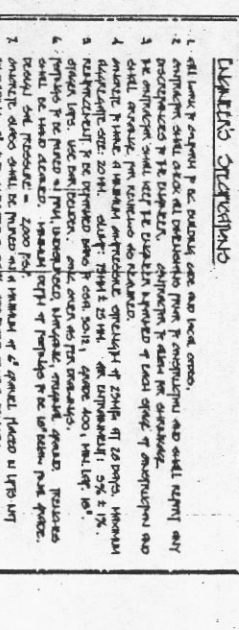 ENGINEER'S SPECIFICATIONS
1. ALL WORK TO CONFORM TO BC BUILDING CODE AND LOCAL CODES.
2. CONTRACTOR SHALL CHECK ALL DIMENSIONS PRIOR TO CONSTRUCTION AND SHALL REPORT ANY
DISCREPANCIES TO THE ENGINEER. CONTRACTOR TO ALLOW FOR SHRINKAGE.
3. THE CONTRACTOR SHALL KEEP THE ENGINEER INFORMED OF EACH STAGE OF CONSTRUCTION AND
SHALL ARRANGE FOR REVIEWS AS REQUIRED.
4. CONCRETE TO HAVE A MINIMUM COMPRESSIVE STRENGTH OF 25MPA AT 28 DAYS. MAXIMUM
AGGREGATE SIZE: 20MM. SLUMP: 75MM ± 25 MM. AIR ENTRAINMENT: 5% ± 1%.
5. REINFORCEMENT TO BE DEFORMED BARS TO CSA G30.12, GRADE 400, MIN. LAP 18".
COVER AS PER DRAWINGS.
6. FOOTINGS TO BE PLACED ON FIRM, UNDISTURBED, GROUND, TRENCHES
SHALL BE HAND CLEANED. MINIMUM DEPTH OF FOOTINGS TO BE 18" BELOW FINAL GRADE.
DESIGN SOIL PRESSURE = 2,000 PSF.
7. CONCRETE SLABS SHALL BE PLACED ON A MINIMUM OF 6" GRAVEL PLACED IN LIFTS NOT